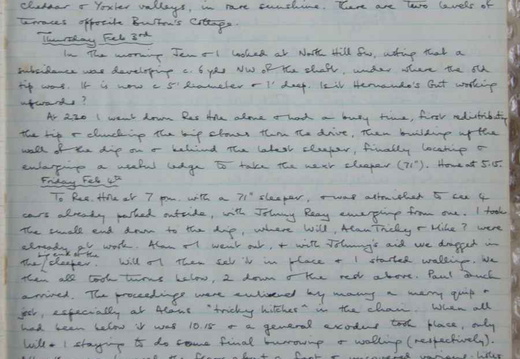 Cheddar & Yoxter valleys, in rare sunshine. There are two levels of
terraces opposite Burton's Cottage.
Thursday Feb 3rd
In the morning Jen & I looked at North Hill Sw, noting that a
subsidence was developing c. 6 yds NW of the shaft, under where the old
tip was. It is now c 5' diameter & 1' deep. Is it Hernando's Gut working
upwards?
At 2.20 I went down Res Hole alone & had a busy time, first redistributing
the tip & chucking the big stones thro the drive, then building up the
wall of the dig on & behind the latest sleeper, finally locating &
enlarging a useful ledge to take the next sleeper (71"). Home at 5.15.
Friday Feb 4th
To Res. Hole at 7 pm. with a 71" sleeper, & was astonished to see 4
cars already parked outside, with Johnny Reay emerging from one. I took
the small end down to the dig, where Will, Alan Tricky & Mike? were
already at work. Alan & I went out, & with Johnny's aid we dragged in
the end of the sleeper. Will & I then set it in place & I started walling. We
then all took turns below, 2 down & the rest above. Paul
arrived. The proceedings were enlivened by many a merry quip &
jest, especially at Alans "tricky hitches" in the chain. When all
had been below it was 10.15 & a general exodus took place, only
Will & I staying to do some final burrowing & walling (respectively).